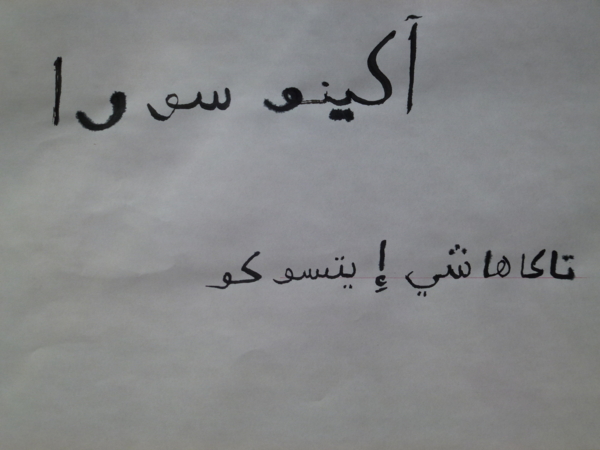 آكينو سورا
تاكاهاشي إيتسوكو